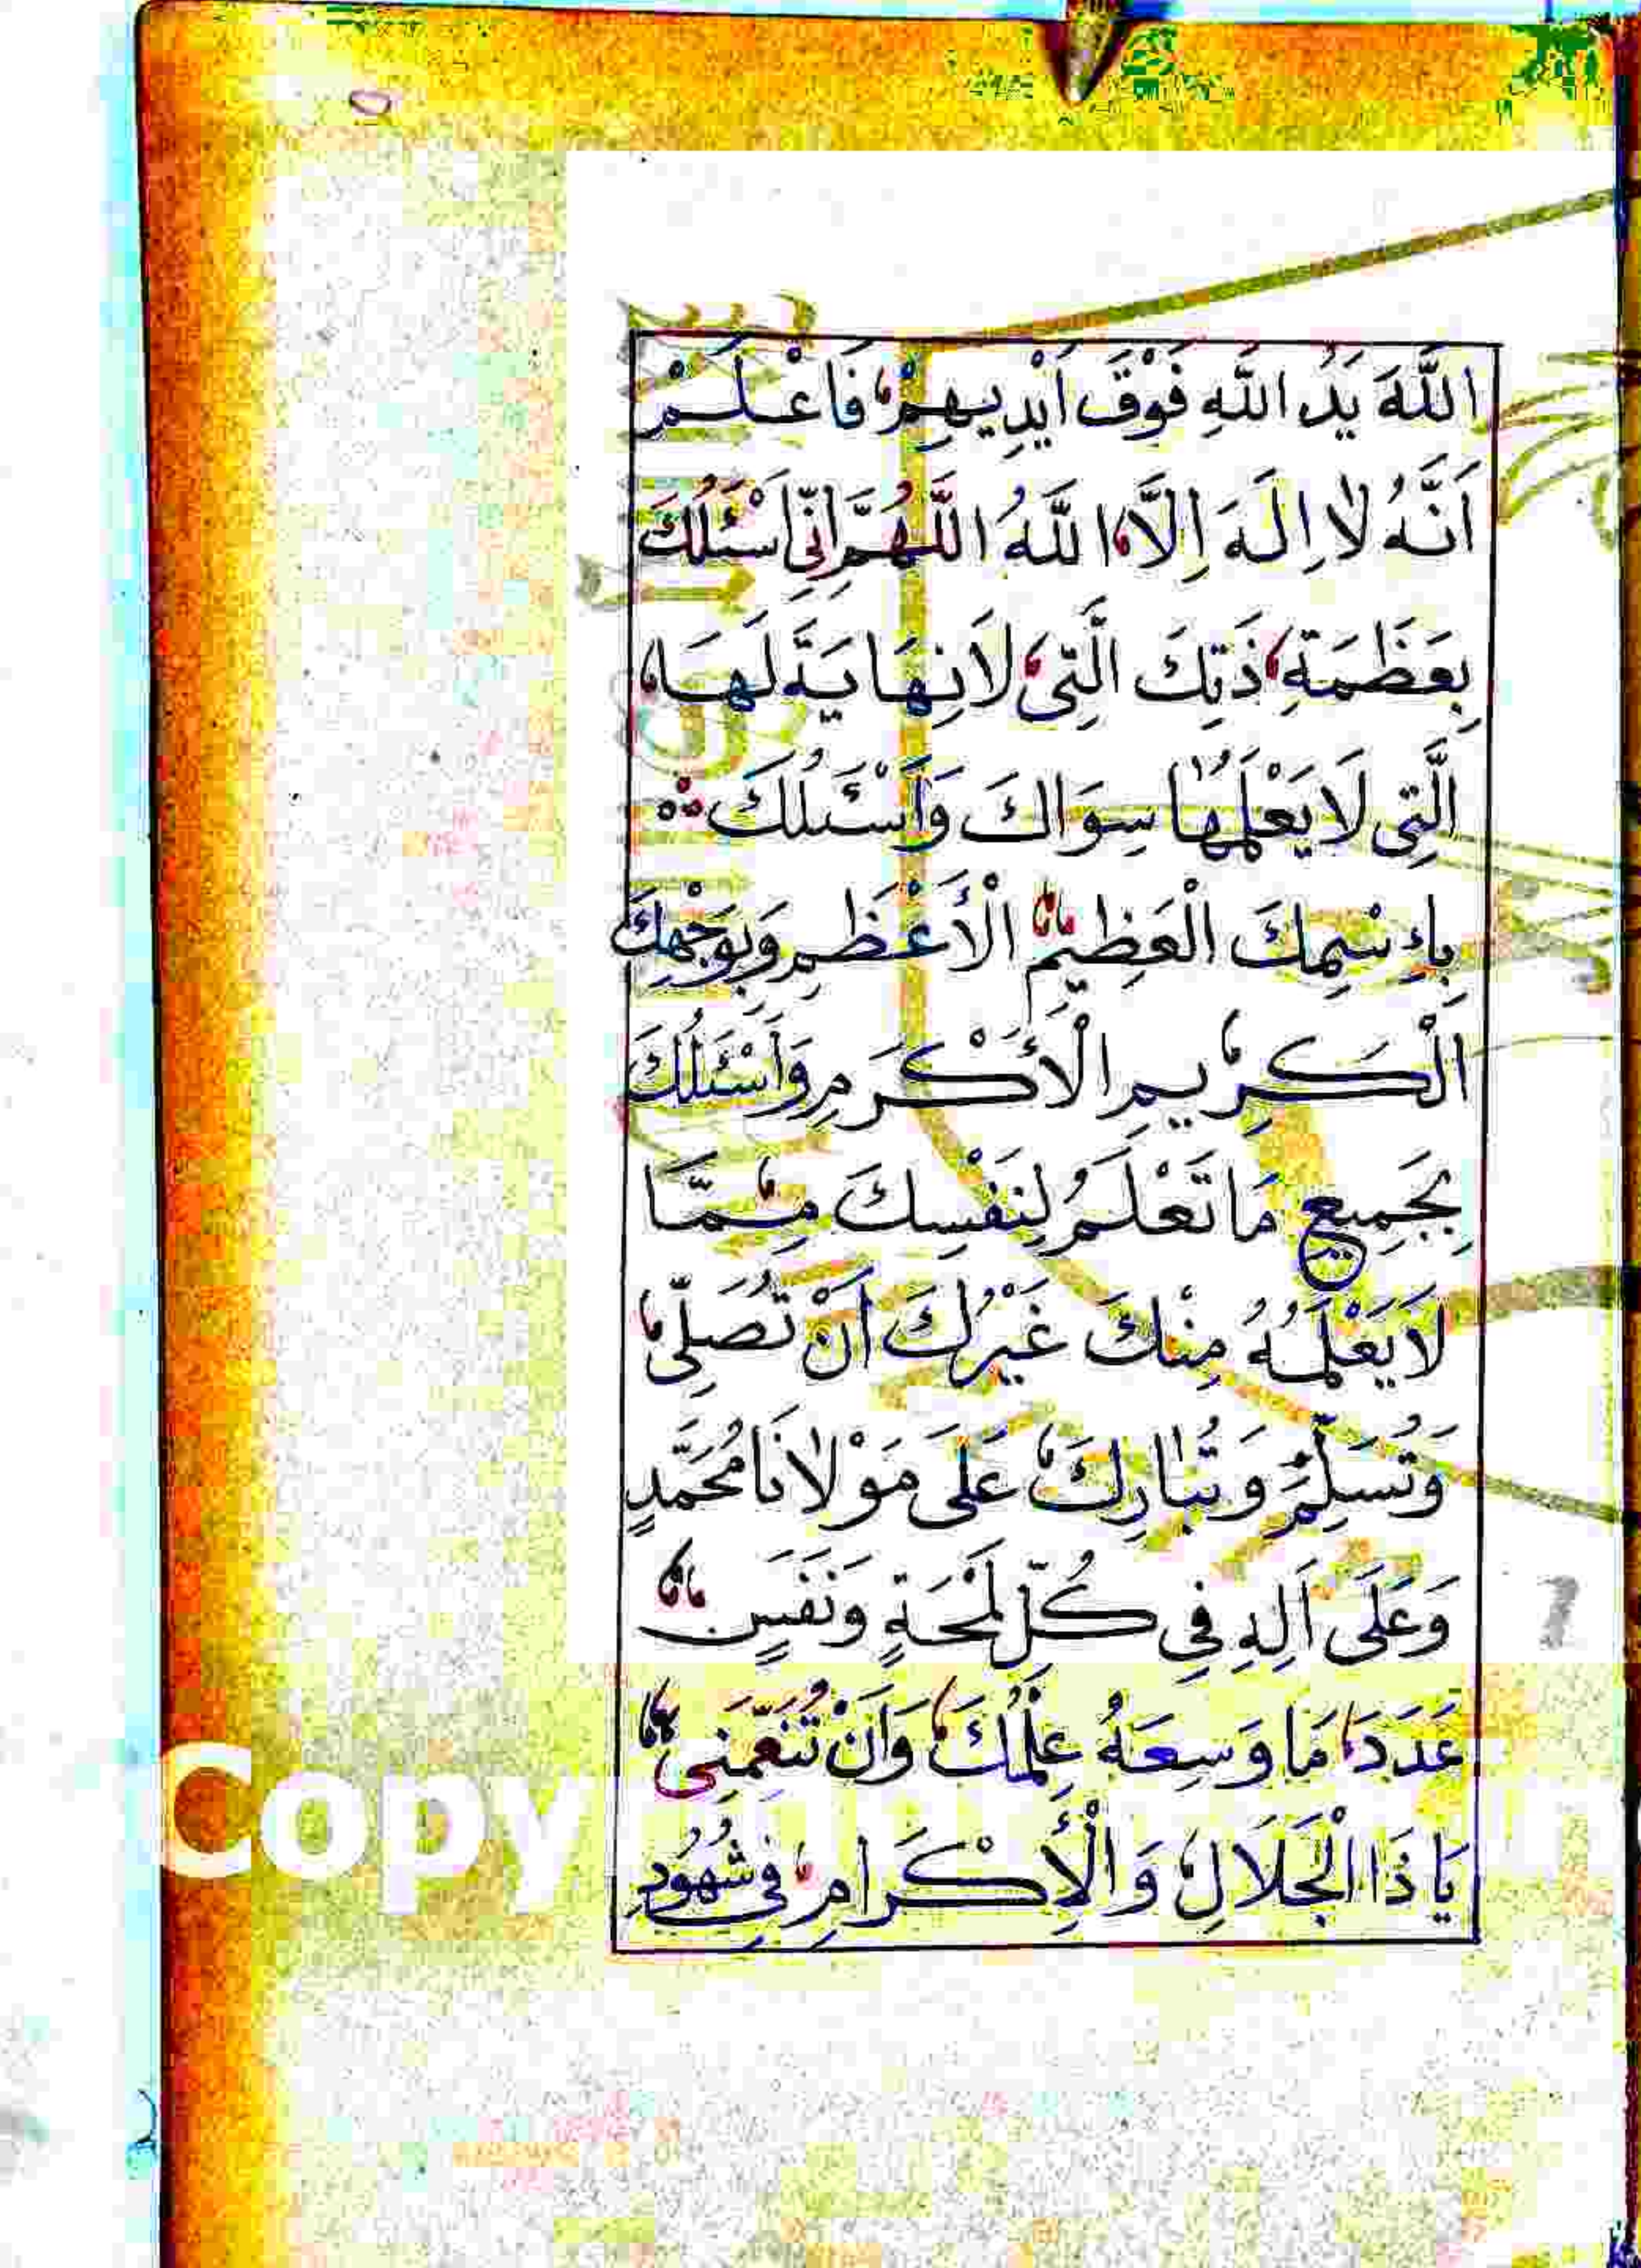 اللَّهَ يَدُ اللَّهِ فَوْقَ اَيْدِيهِمْ فَاعْلَمْ
اَنَّهُ لَا اِلَهَ اِلَّا اللَّهُ اللَّهُمَّ اِنِّي اَسْئَلُكَ
بِعَظَمَةِ ذَتِكَ الَّتِي لَا نِهَايَةَ لَهَا
الَّتِي لَا يَعْلَمُهَا سِوَاكَ وَاَسْئَلُكَ
بِاِسْمِكَ الْعَظِيمِ الْأَعْظَمِ وَبِوَجْهِكَ
الْكَرِيمِ الْأَكْرَمِ وَأَسْئَلُكَ
بِجَمِيعِ مَا تَعْلَمُ لِنَفْسِكَ مِمَّا
لَا يَعْلَمُهُ مِنْكَ غَيْرُكَ اَنْ تُصَلِّي
وَتُسَلِّمَ وَتُبَارِكَ عَلَى مَوْلَانَا مُحَمَّدٍ
وَعَلَى اَلِهِ فِي كُلِّ لَمْحَةٍ وَنَفَسٍ
عَدَدَ مَا وَسِعَهُ عِلْمُكَ وَاَنْ تُنَعِّمَنِي
يَا ذَا الْجَلَالِ وَالْإِكْرَامِ فِي شُهُودِ
Copy